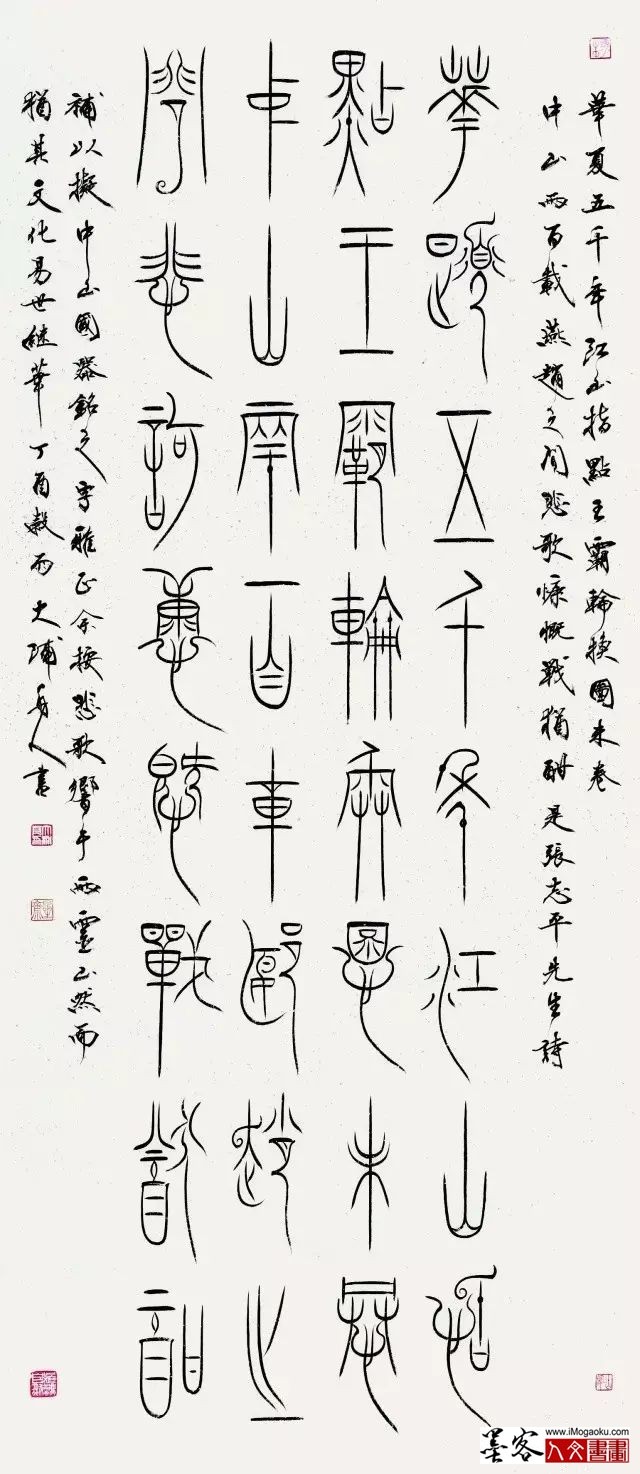 華夏五千年江山指點王霸輪換圖未卷
中山兩百載燕趙之間悲歌慷慨戰猶酣是張志平先生詩
華夏五千年江山指
點王霸輪換圖未卷
中山兩百載燕趙之
間悲歌慷慨戰猶酣
補以擬中山國器銘之字雅正余按悲歌響乎兩靈山然而
猶其文化易世繼華丁酉穀雨大浦舟人書
墨客
www.iMogaoku.com
人文書畫